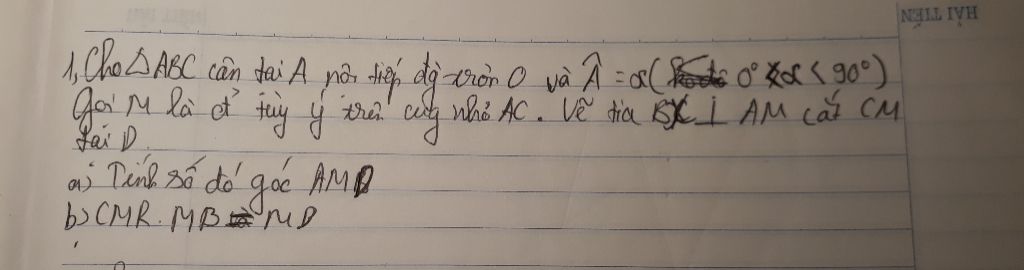 HẢI TIẾN
1, Cho △ABC cân tại A nội tiếp đg tròn O và Â = α ( 0° < α < 90°)
Gọi M là đ' tùy ý trên cung nhỏ AC. Vẽ tia Bx ⊥ AM cắt CM
tại D.
a) Tính số đo góc AMD
b) CMR. MB = MD